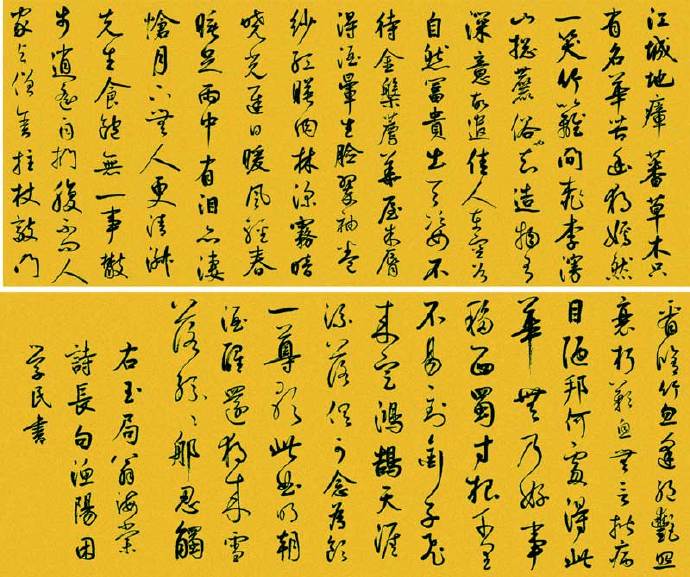 江城地瘴蕃草木只
有名華苦幽獨嫣然
一笑竹籬間桃李漫
山總麤俗也知造物有
深意故遣佳人在空谷
自然富貴出天姿不
待金槃薦華屋朱脣
得酒暈生臉翠袖卷
紗紅映肉林深霧暗
曉光遲日暖風輕春
睡足雨中有泪亦悽
愴月下無人更清淑
先生食飽無一事散
步逍遙自捫腹不問人
家與僧舍拄杖敲門
看脩竹忽逢絕艷照
衰朽歎息無言揩病
目陋邦何處得此
華無乃好事
移西蜀寸根千里
不易到銜子飛
來定鴻鵠天涯
流落俱可念為飲
一尊歌此曲明朝
酒醒還獨來雪
落紛紛那忍觸
右玉局翁海棠
詩長句漁陽困
學民書